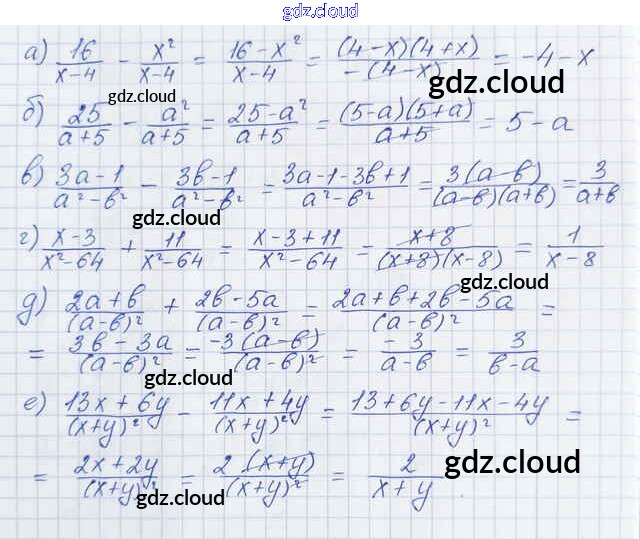 gdz.cloud
а) 16/(x-4) - x²/(x-4) = (16-x²)/(x-4) = (4-x)(4+x)/-(4-x) = -4-x
gdz.cloud
gdz.cloud
б) 25/(a+5) - a²/(a+5) = (25-a²)/(a+5) = (5-a)(5+a)/(a+5) = 5-a
gdz.cloud
в) (3a-1)/(a²-b²) - (3b-1)/(a²-b²) = (3a-1-3b+1)/(a²-b²) = 3(a-b)/(a-b)(a+b) = 3/(a+b)
gdz.cloud
г) (x-3)/(x²-64) + 11/(x²-64) = (x-3+11)/(x²-64) = (x+8)/(x+8)(x-8) = 1/(x-8)
gdz.cloud
gdz.cloud
д) (2a+b)/(a-b)² + (2b-5a)/(a-b)² = (2a+b+2b-5a)/(a-b)² =
gdz.cloud
= (3b-3a)/(a-b)² = -3(a-b)/(a-b)² = -3/(a-b) = 3/(b-a)
gdz.cloud
е) (13x+6y)/(x+y)² - (11x+4y)/(x+y)² = (13+6y-11x-4y)/(x+y)² =
gdz.cloud
= (2x+2y)/(x+y)² = 2(x+y)/(x+y)² = 2/(x+y)
gdz.cloud